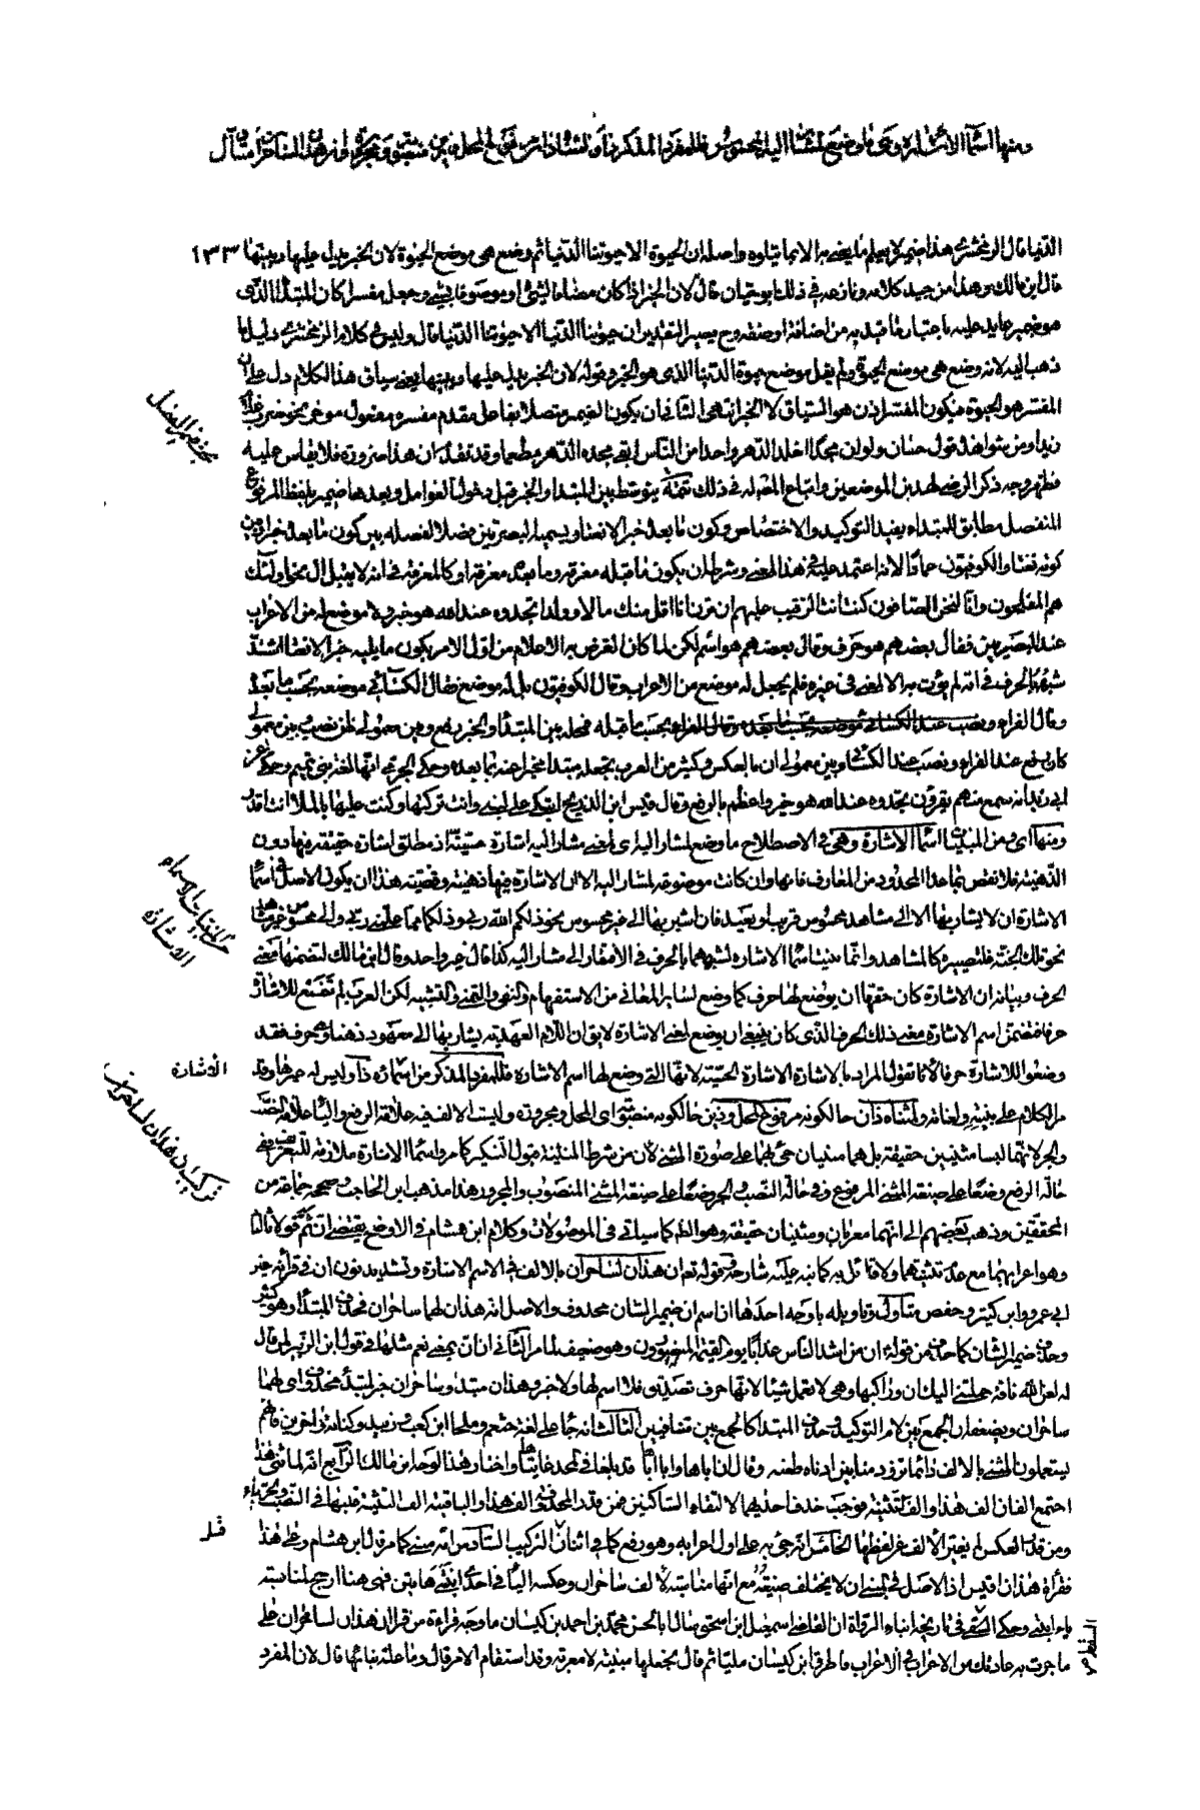 ومنها اسماء الاشارة وهى ما وضع لمشار اليه المحسوس فللمفرد المذكر ذا ولمثناه ذان مرفوع المحل وذين منصوبه ومجروره وان هذان لساحران متأول
١٣٣
الدنيا قال الزمخشرى هذا ضمير لا يعلم ما يعنى به الا بما يتلوه واصله ان الحيوة الا حيوتنا الدنيا ثم وضع هى موضع الحيوة لان الخبر يدل عليها ويبينها
قال ابن مالك وهذا من جيد كلامه ونازعه فى ذلك ابو حيان قال لان الخبر اذا كان مضافا لشئ او موصوفا بشئ وجعل مفسرا كان المبتدأ الذى
هو ضمير عايد عليه باعتبار ما قيد به من اضافة او صفة وح يصير التقدير ان حيوتنا الدنيا الا حيوتنا الدنيا قال وليس فى كلام الزمخشرى دليل لما
ذهب اليه لانه وضع هى موضع الحيوة ولم يقل موضع حيوة الدنيا الذى هو الخبر وقوله لان الخبر يدل عليها ويبينها يعنى سياق هذا الكلام دل على ان
المفسر هو الحيوة فيكون المفسر اذن هو السياق لا الخبر انتهى الثانى ان يكون الضمير متصلا بفاعل مقدم مفسره مفعول مؤخر نحو ضرب غلامه
زيدا ومن شواهده قول حسان ولو ان مجدا اخلد الدهر واحدا من الناس ابقى مجده الدهر مطعما وقد تقدم ان هذا ضرورة فلا يقاس عليه
فظهر وجه ذكر الرضى لهذين الموضعين واتباع المص له فى ذلك تتمة يتوسط بين المبتدا والخبر قبل دخول العوامل وبعدها ضمير بلفظ المرفوع
المنفصل مطابق للمبتداء يفيد التوكيد والاختصاص وكون ما بعده خبرا لا نعتا ويسميه البصريين فصلا لفصله بين كون ما بعده خبرا وبين
كونه نعتا والكوفيون عمادا لانه اعتمد عليه فى هذا المعنى وشرطه ان يكون ما قبله معرفة وما بعده معرفة او كالمعرفة فى انه لا يقبل ال نحو اولئك
هم المفلحون وانا لنحن الصافون كنت انت الرقيب عليهم ان ترن انا اقل منك مالا وولدا تجدوه عند الله هو خير ولا موضع له من الاعراب
عند البصريين فقال بعضهم هو حرف وقال بعضهم هو اسم لكن لما كان الغرض به الاعلام من اول الامر بكون ما يليه خبرا لا نعتا اشتد
شبهه بالحرف فى انه لم يؤت به الا لمعنى فى غيره فلم يجعل له موضع من الاعراب وقال الكوفيون بل له موضع فقال الكسائى موضعه بحسب ما بعده
وقال الفراء بحسب ما قبله فمحله بين المبتدأ والخبر رفع وبين معمولى ظن نصب وبين معمولى
كان رفع عند الفراء ونصب عند الكسائى وبين معمولى ان بالعكس وكثير من العرب يجعله مبتدا مخبرا عنه بما بعده وحكى الجرمى انها لغة بنى تميم وحكى عن
ابى زيد انه سمع منهم يقرؤن تجدوه عند الله هو خير واعظم بالرفع وقال قيس ابن الذريح اتبكى على لبنى وانت تركتها وكنت عليها بالملا انت اقدر
ومنها اى من المبنيات اسماء الاشارة وهى فى الاصطلاح ما وضع لمشار اليه اى لمعنى مشار اليه اشارة حسيّة اذ مطلق اشارة حقيقة فيها دون
الذهنية فلا نقض بما عدا المحدود من المعارف فانها وان كانت موضوعة لمشار اليه الا ان الاشارة فيها ذهنية وقضيّة هذا ان يكون الاصل فى اسماء
الاشارة ان لا يشار بها الا الى مشاهد محسوس قريب او بعيد فان اشير بها الى غير محسوس نحو ذلكم الله ربى وذلكما مما علمنى ربى والى محسوس غير مشاهد
نحو تلك الجنة فلتصييره كالمشاهد وانما بنيت اسماء الاشارة لشبهها بالحرف فى الافتقار الى مشار اليه كذا قال غير واحد وقال ابن مالك لتضمنها معنى
الحرف وبيانه ان الاشارة كان حقها ان يوضع لها حرف كما وضع لساير المعانى من الاستفهام والنفى والتمنى والتشبيه لكن العرب لم تضع للاشارة
حرفا فتضمن اسم الاشارة معنى ذلك الحرف الذى كان ينبغى ان يوضع لمعنى الاشارة لا يق ان اللام العهدية يشار بها الى معهود ذهنا وهى حرف فقد
وضعوا للاشارة حرفا لانا نقول المراد بالاشارة الاشارة الحسيّة لانها التى وضع لها اسم الاشارة فللمفرد المذكر من اسمائه ذا وليس له غيرها وقد
مر الكلام على بنيته ولغاته ولمثناه ذان حالكونه مرفوع المحل وذين حالكونه منصوبه اى المحل ومجروره وليست الالف فيه علامة الرفع والياء علامة النصب
والجر لانهما ليسا مثنيين حقيقة بل هما مبنيان جئ بهما على صورة المثنى لان من شرط التثنية قبول التنكير كما مر واسماء الاشارة ملازمة للتعريف ففى
حالة الرفع وضعا على صيغة المثنى المرفوع وفى حالة النصب والجر وضعا على صيغة المثنى المنصوب والمجرور هذا مذهب ابن الحاجب وصححه جماعة من
المحققين وذهب بعضهم الى انهما معربان ومثنيان حقيقة وهو الظ كما سياتى فى الموصولات وكلام ابن هشام فى الاوضح يقتضى ان ثم قولا ثالثا
وهو اعرابهما مع عدم تثنيتهما ولا قائل به كما نبه عليه شارحه وقوله تع ان هذان لساحران بالالف فى الاسم الاشارة وتشديد نون ان فى قراءة غير
ابى عمرو وابن كثير وحفص متأول وتاويله باوجه احدها ان اسم ان ضمير الشان محذوف والاصل انه هذان لهما ساحران فحذف المبتدأ وهو كثير
وحذف ضمير الشان كما حذف من قوله ان من اشد الناس عذابا يوم القيمة المصورون وهو ضعيف لما مر الثانى ان ان بمعنى نعم مثلها فى قول ابن الزبير لمن قال
له لعن الله ناقة حملتنى اليك ان وراكبها وهى لا تعمل شيئا لانها حرف تصديق فلا اسم لها ولا خبر وهذان مبتدا وساحران خبر لمبتدأ محذوف اى لهما
ساحران ويضعفه ان الجمع بين لام التوكيد وحذف المبتدا كالجمع بين متنافيين الثالث انه جاء على لغة خثعم وملحا ابن كعب وزبيد وكنانه واخرين فانهم
يستعملون المثنى بالالف دائما تزود منا بين اذناه طعنه وقال ان اباها وابا اباها قد بلغا فى المجد غايتاها واختار هذا الوجه ابن مالك الرابع انه لما ثنى هذا
اجتمع الفان الف هذا والف التثنية فوجب حذف احديهما لالتقاء الساكنين فمن قدر المحذوف الف هذا والباقية الف التثنية قلبها فى النصب والجر ياء
ومن قدر العكس لم يغير الالف عن لفظها الخامس انه جئ به على اول اعرابه وهو رفع كما فى اثنان قبل التركيب السادس انه مبنى كما مر قال ابن هشام وعلى هذا
فقراءة هذان اقيس اذ الاصل فى المبنى ان لا يختلف صيغته مع ان فيها مناسبة لالف ساحران وعكسه الياء فى احدى ابنتى هاتين فهى هنا ارجح لمناسبة
ياء ابنتى وحكى فى تاريخه انباء الرواة ان القاضى اسمعيل ابن اسحق سال ابا الحسن محمد بن احمد بن كيسان ما وجه قراءة من قرا ان هذان لساحران على
ما جرت به عادتك من الاغراب فى الاعراب فاطرق ابن كيسان مليا ثم قال نجعلها مبنية لا معربة وقد استقام الامر قال وما علة بنائها قال لان المفرد
مبحث ضمير الفصل
من المبنيات الاسماء الاشارة
الاشارة
تركيب ان هذان لساحران
قبل